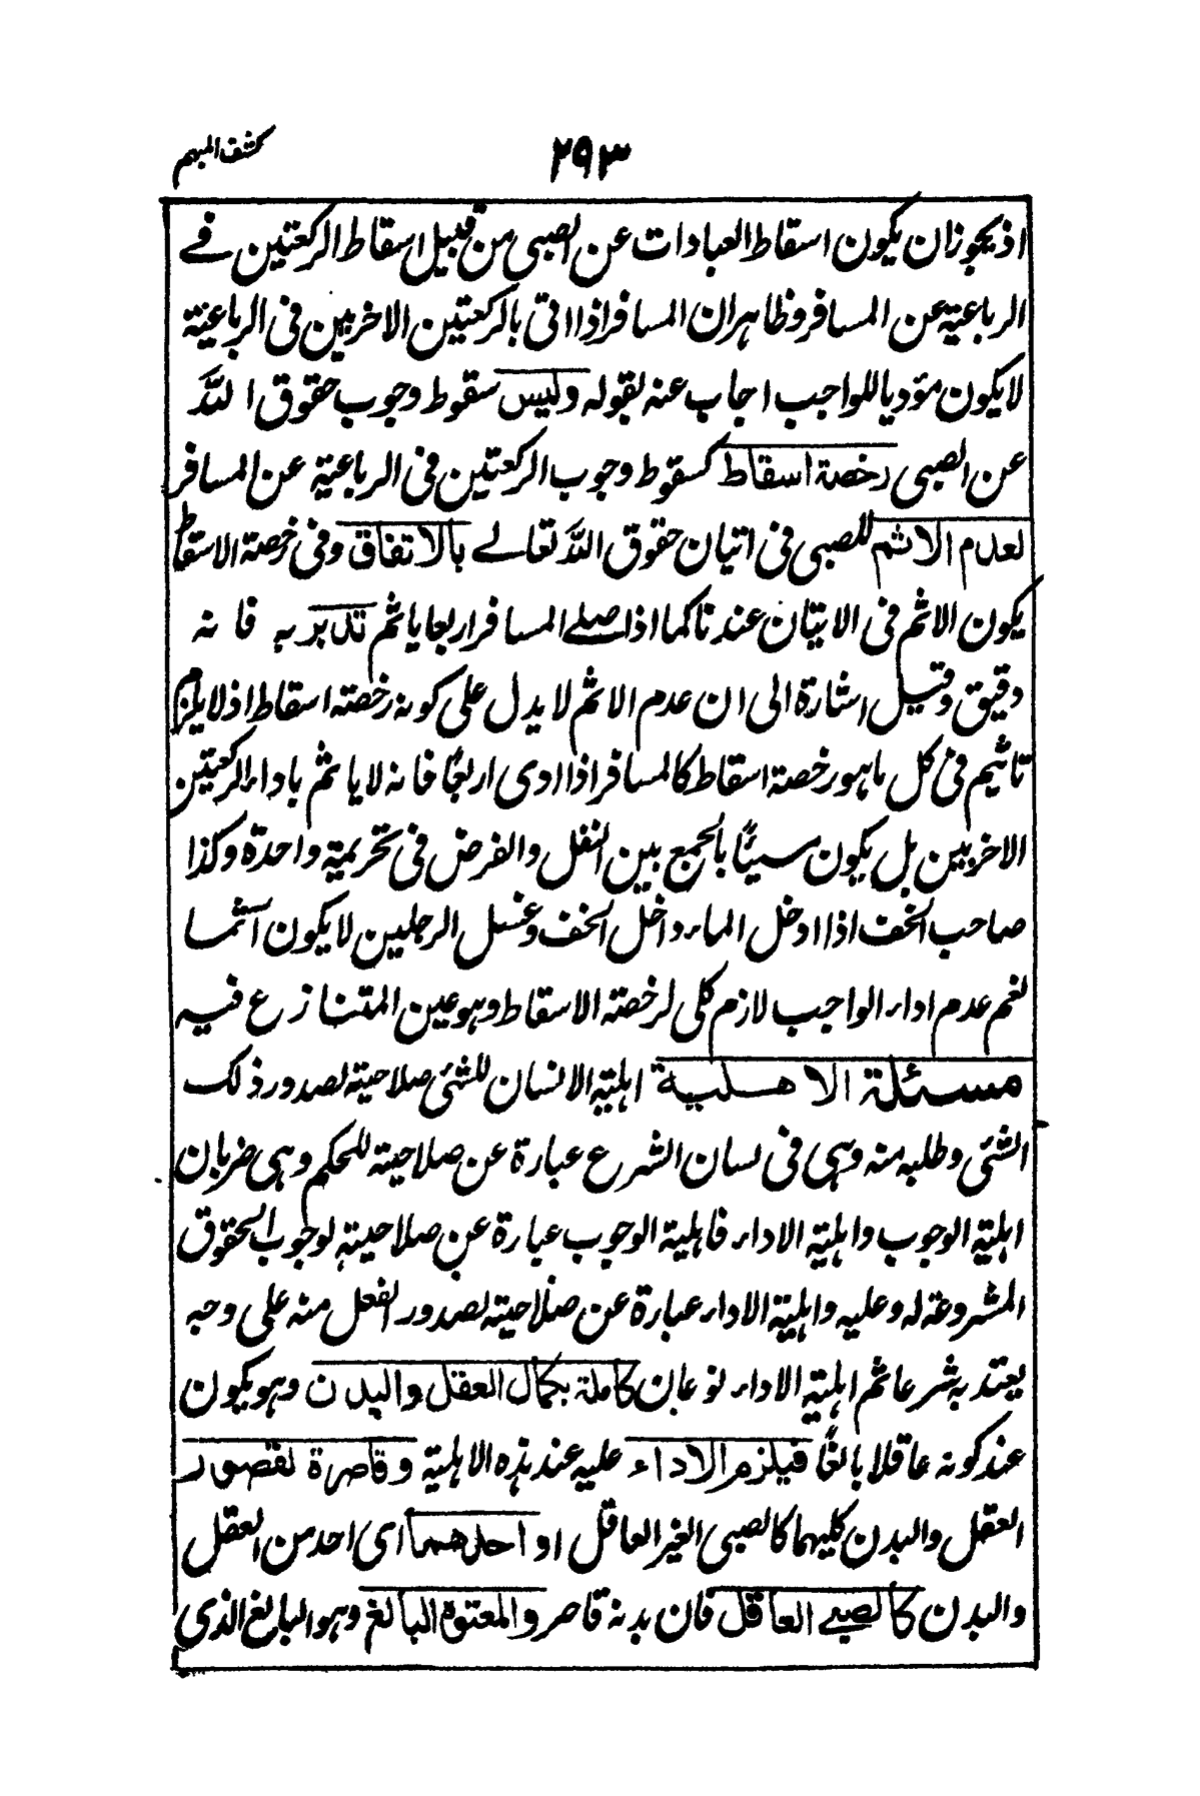 كشف المبهم
٢٩٣
اذ يجوز ان يكون اسقاط العبادات عن الصبى من قبيل اسقاط الركعتين فے
الرباعية عن المسافر وظاهر ان المسافر اذا اتى بالركعتين الاخريين فى الرباعية
لا يكون مؤديا للواجب اجاب عنه بقوله وليس سقوط وجوب حقوق الله
عن الصبى رخصة اسقاط كسقوط وجوب الركعتين فى الرباعية عن المسافر
لعدم الاثم للصبى فى اتيان حقوق الله تعالے بالاتفاق وفى رخصة الاسقاط
يكون الاثم فى الاتيان عندنا كما اذا صلے المسافر اربعا ياثم تدبر به فانه
دقيق وقيل اشارة الى ان عدم الاثم لا يدل على كونه رخصته اسقاط اذ لا يلزم
تاثيم فى كل ما هو رخصة اسقاط كالمسافر اذا ادى اربعًا فانه لا ياثم باداء الركعتين
الاخريين بل يكون مسيئًا بالجمع بين النفل والفرض فى تحريمة واحدة وكذا
صاحب الخف اذا ادخل الماء داخل الخف وغسل الرجلين لا يكون آثما
نعم عدم اداء الواجب لازم كلى لرخصة الاسقاط وهو عين المتنازع فيه
مسئلة الاهلية اهلية الانسان للشئ صلاحيته لصدور ذلك
الشئ وطلبه منه وهى فى لسان الشرع عبارة عن صلاحيته للحكم وهى ضربان
اهلية الوجوب واهلية الاداء فاهلية الوجوب عبارة عن صلاحيته لوجوب الحقوق
المشروعة له وعليه واهلية الاداء عبارة عن صلاحيته لصدور الفعل منه على وجه
يعتد به شرعا ثم اهلية الاداء نوعان كاملة بكمال العقل والبدن وهو يكون
عند كونه عاقلا بالغًا فيلزم الاداء عليه عند هذه الاهلية وقاصرة لقصور
العقل والبدن كليهما كالصبى الغير العاقل او احدهما اى احد من العقل
والبدن كالصبے العاقل فان بدنه قاصر والمعتوه البالغ وهو البالغ الذى